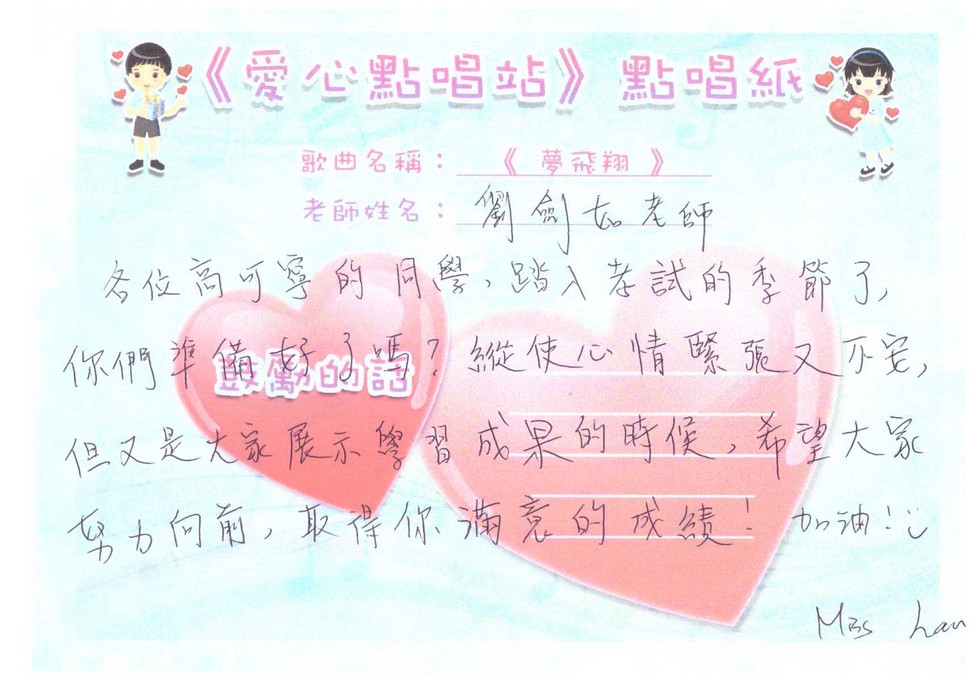 《愛心點唱站》點唱紙
歌曲名稱：《夢飛翔》
老師姓名：劉劍如老師
各位高可寧的同學，踏入考試的季節了，
鼓勵的話
你們準備好了嗎？縱使心情緊張又不安，
但又是大家展示學習成果的時候，希望大家
努力向前，取得你滿意的成績！加油！
Miss Lau